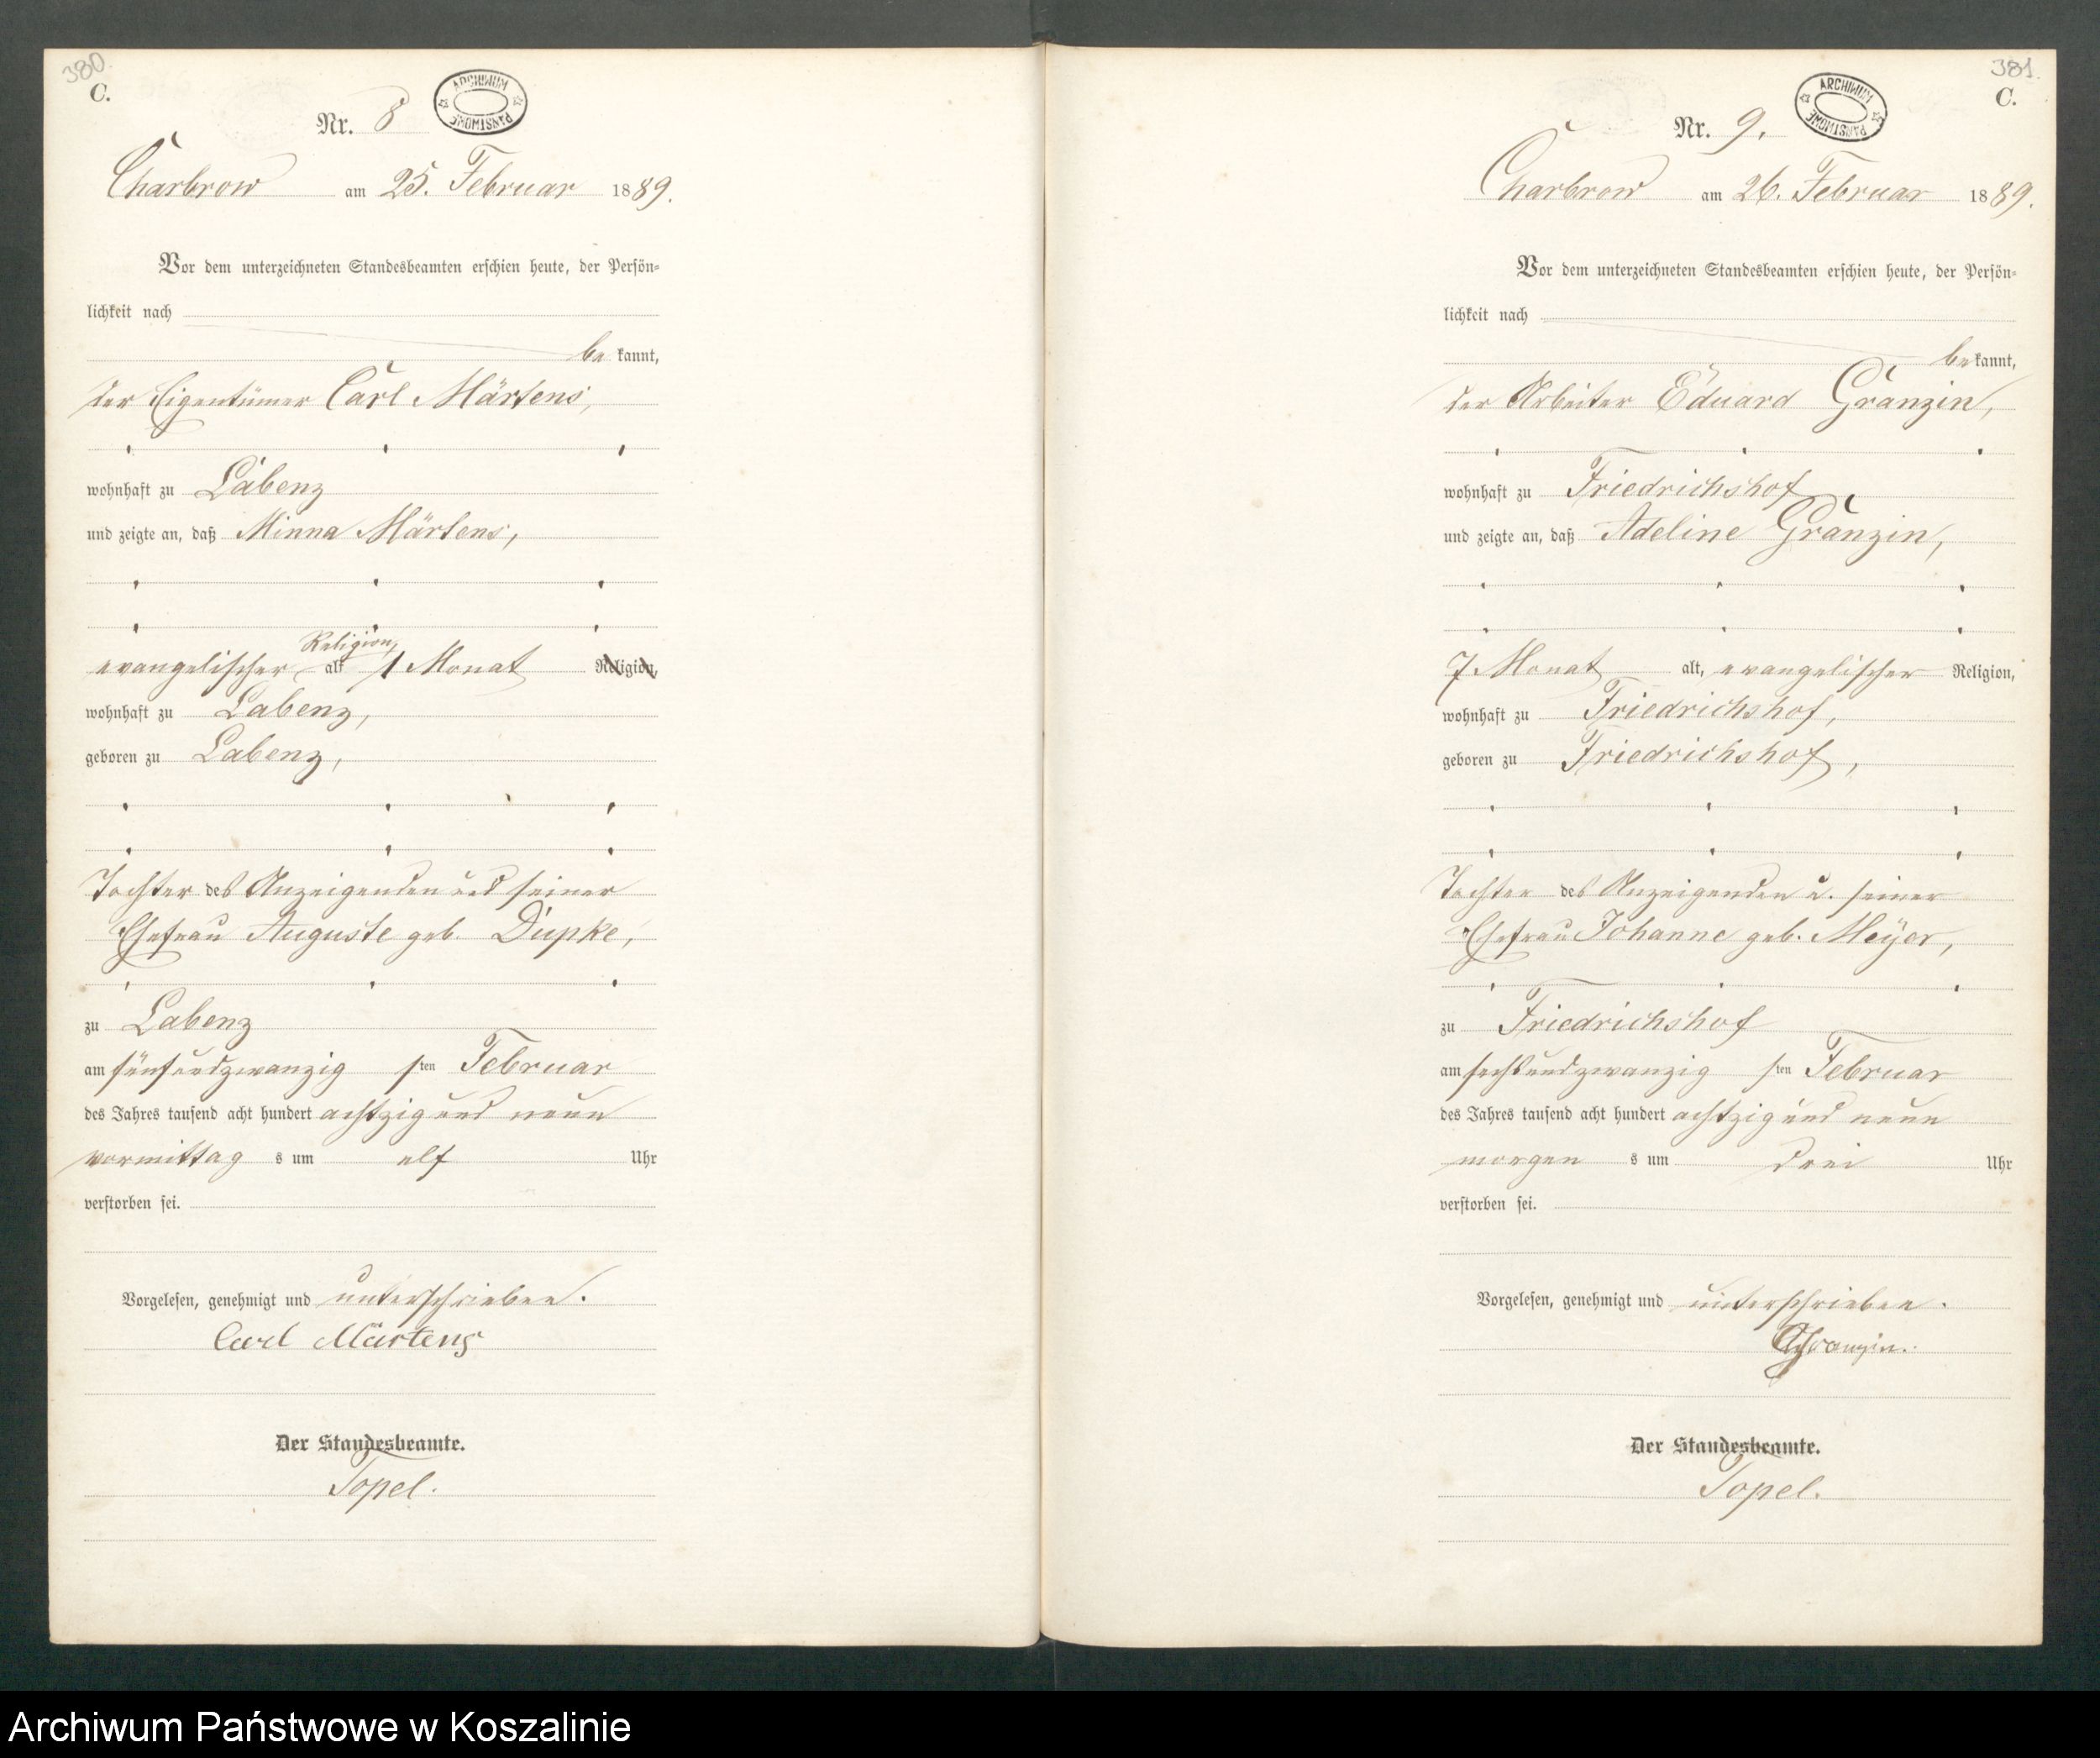 380.
C.
ARCHIWUM PAŃSTWOWE
Nr. 8
Charbrow am 25. Februar 1889.
Vor dem unterzeichneten Standesbeamten erschien heute, der Persön-
lichkeit nach
be kannt,
der Eigentümer Carl Märtens,
wohnhaft zu Labenz
und zeigte an, daß Minna Märtens,
Religion,
evangelischer alt 1 Monat Religion,
wohnhaft zu Labenz,
geboren zu Labenz,
Tochter des Anzeigenden und seiner
Ehefrau Auguste geb. Dupke,
zu Labenz
am fünfundzwanzig sten Februar
des Jahres tausend acht hundert achtzig und neun
vormittag s um elf Uhr
verstorben sei.
Vorgelesen, genehmigt und unterschrieben.
Carl Märtens
Der Standesbeamte.
Topel.
381.
C.
ARCHIWUM PAŃSTWOWE
Nr. 9.
Charbrow am 26. Februar 1889.
Vor dem unterzeichneten Standesbeamten erschien heute, der Persön-
lichkeit nach
be kannt,
der Arbeiter Eduard Granzin,
wohnhaft zu Friedrichshof
und zeigte an, daß Adeline Granzin,
7 Monat alt, evangelischer Religion,
wohnhaft zu Friedrichshof,
geboren zu Friedrichshof,
Tochter des Anzeigenden u. seiner
Ehefrau Johanne geb. Meÿer,
zu Friedrichshof
am sechsundzwanzig sten Februar
des Jahres tausend acht hundert achtzig und neun
morgen s um drei Uhr
verstorben sei.
Vorgelesen, genehmigt und unterschrieben.
Granzin.
Der Standesbeamte.
Topel.
Archiwum Państwowe w Koszalinie